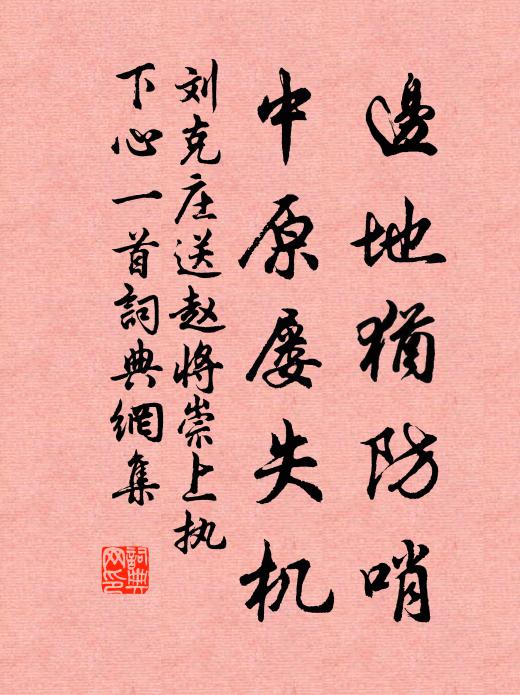 邊地猶防哨
中原屡失机
刘克庄送赵将崇上执
下心一首詞典網集
詞典
网印